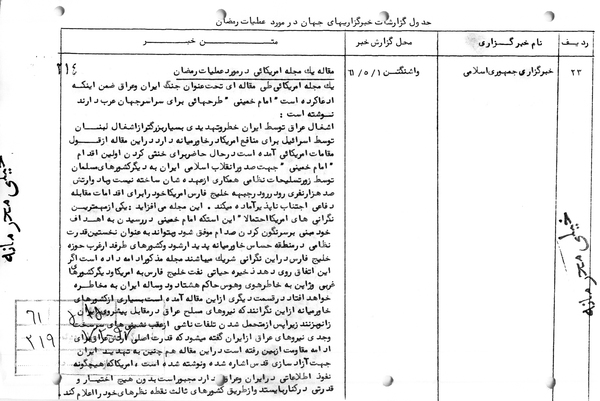 جدول گزارشات خبرگزاریهای جهان در مورد عملیات رمضان
ردیف
نام خبرگزاری
محل گزارش خبر
متن خبر
۲۳
خبرگزاری جمهوری اسلامی
واشنگتن ۶۱/۵/۱
۲۱۴
مقاله یک مجله امریکائی در مورد عملیات رمضان
یک مجله امریکائی طی مقاله ای تحت عنوان جنگ ایران وعراق ضمن اینکه
ادعا کرده است "امام خمینی" طرحهائی برای سراسرجهان عرب دارند
نوشته است :
اشغال عراق توسط ایران خطر وتهدیدی بسیار بزرگتر از اشغال لبنان
توسط اسرائیل برای منافع امریکا در خاورمیانه دارد در این مقاله از قول
مقامات امریکائی آمده است در حال حاضر برای خنثی کردن اولین اقدام
"امام خمینی" جهت صدور انقلاب اسلامی ایران به دیگر کشورهای مسلمان
توسط زور تسلیحات نظامی همکاری از عهده شان ساخته نیست وباد وارتش
صد هزار نفری رود ررو در جبهه خلیج فارس امریکا خود را برای اقدامات مقابله
دفاعی اجتناب ناپذیر آماده میکند . این مجله می افزاید : یکی از مهمترین
نگرانی های امریکا احتمالا" این استکه امام خمینی در رسیدن به اهداف
خود مبنی بر سرنگون کردن صدام موفق شود ومیتواند به عنوان نخستین قدرت
نظامی در منطقه حساس خاورمیانه پدیدار شود وکشورهای طرفدار غرب حوزه
خلیج فارس در این نگرانی شریک میباشند مجله مذکور ادامه داده است اگر
این اتفاق روی دهد ذخیره حیاتی نفت خلیج فارس به امریکا و دیگر کشورهای
غربی وژاپن به خاطر هوی وهوس حاکم هشتاد وساله ایران به مخاطره
خواهد افتاد در قسمت دیگری از این مقاله آمده است بسیاری از کشورهای
خاورمیانه از این نگرانند که نیروهای مسلح عراق در مقابل پیشروی ایران
زانو بزنند زیرا پس از متحمل شدن تلفات ناشی از عقب نشینی های
وجدی نیروهای عراق از ایران گفته میشود که قدرت اصلی برای
ادامه مقاومت از بین رفته است در این مقاله هم چنین به تهدید ایران
جهت آزاد سازی قدس اشاره شده ونوشته شده است ، امریکا که هیچگونه
نفوذ اطلاعاتی در ایران وعراق دارد مجبور است بدون هیچ اختیار و
قدرتی در کنار بایستد واز طریق کشورهای ثالث نقطه نظرهای خود را اعلام کند .
۶۱
۲۱۹
خیلی محرمانه
خیلی محرمانه